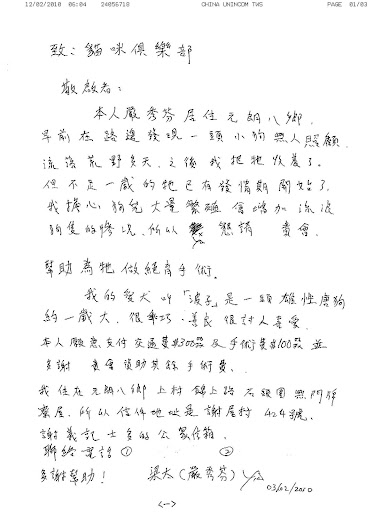 12/02/2010 06:04 24056718 CHINA UNINCOM TWS PAGE 01/03
致：貓咪俱樂部
敬啟者：
本人嚴秀芬居住元朗八鄉，
早前在路邊發現一頭小狗無人照顧，
流落荒野多天，之後我把牠收養了。
但不足一歲的牠已有發情期開始了。
我擔心狗兒大量繁殖會增加流浪
狗隻的慘況，所以 懇請 貴會，
幫助為牠做絕育手術。
我的愛犬叫「波子」是一頭雄性唐狗
約一歲大，很乖巧、善良很討人喜愛。
本人願意支付交通費$300及手術費$100並
多謝 貴會資助其餘手術費。
我住在元朗八鄉上村錦上路石頭圍無門牌
寮屋，所以信件地址是謝屋村424號，
謝義記士多的公眾信箱。
聯絡電話① ②
多謝幫助！ 梁太（嚴秀芬）
03/02/2010
<一>